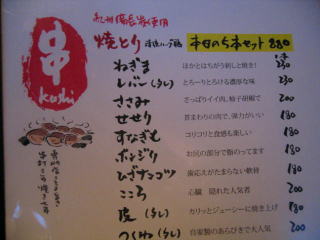 紀州備長炭使用
串
Kushi
焼とり
本日の5本セット 880
ねぎま ほかとはちがう刺しと焼き! 230
レバー(タレ) とろーりとろける濃厚な味 230
ささみ さっぱりイイ肉、柚子胡椒で 200
せせり 首まわりの肉で、弾力がいい 180
すなぎも コリコリと食感も楽しい 180
ボンジリ お尻の部分で脂のってます 180
ひざナンコツ 歯応えがたまらない軟骨 180
こころ 心臓 隠れた人気者 180
皮(タレ) カリッとジューシーに焼き上げ 180
つくね(タレ) 自家製のあらびきで大人気 200